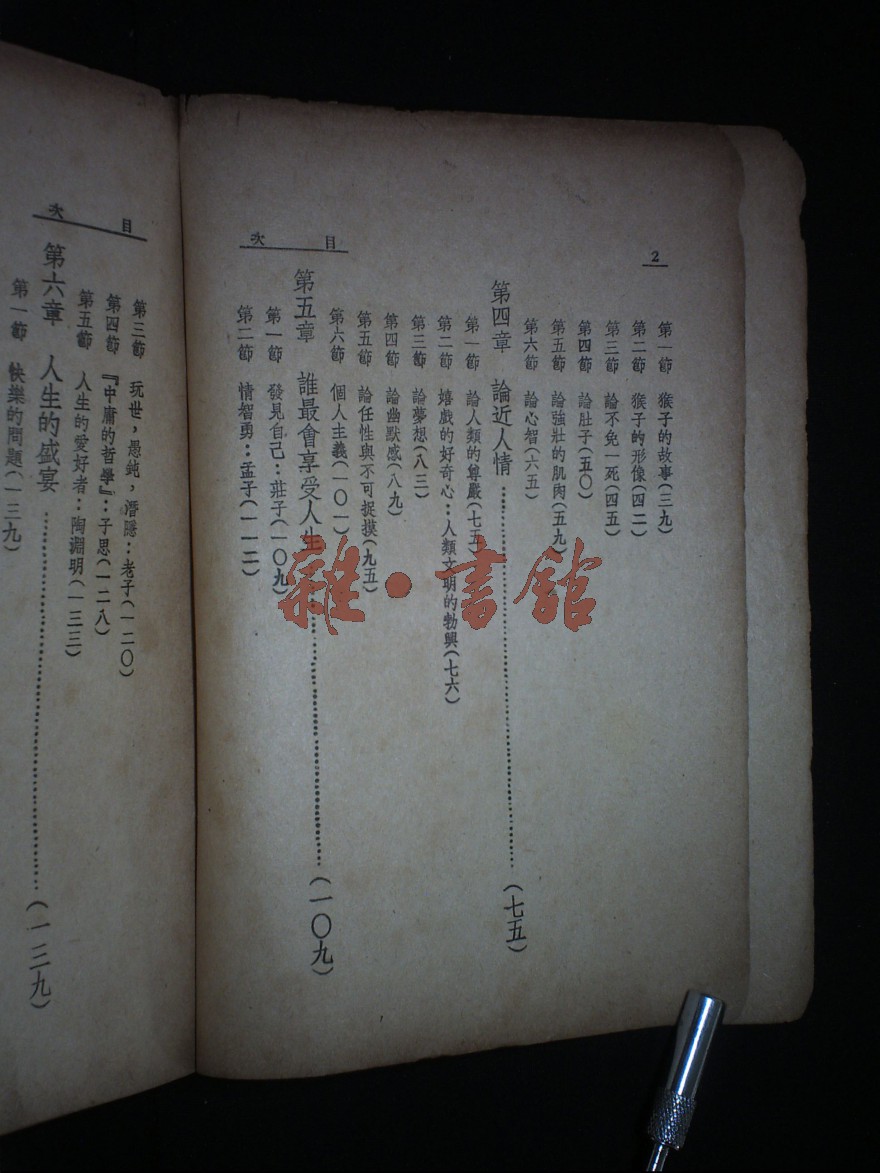 目 次
2
第一節 猴子的故事(三九)
第二節 猴子的形像(四二)
第三節 論不免一死(四五)
第四節 論肚子(五〇)
第五節 論強壯的肌肉(五九)
第六節 論心智(六五)
第四章 論近人情……(七五)
第一節 論人類的尊嚴(七五)
第二節 嬉戲的好奇心：人類文明的勃興(七六)
第三節 論夢想(八三)
第四節 論幽默感(八九)
第五節 論任性與不可捉摸(九五)
第六節 個人主義(一〇一)
第五章 誰最會享受人生……(一〇九)
第一節 發見自己：莊子(一〇九)
第二節 情智勇：孟子(一一二)
目 次
第三節 玩世，愚鈍，潛隱：老子(一二〇)
第四節 『中庸的哲學』：子思(一二八)
第五節 人生的愛好者：陶淵明(一三三)
第六章 人生的盛宴……(一三九)
第一節 快樂的問題(一三九)
雜·書館